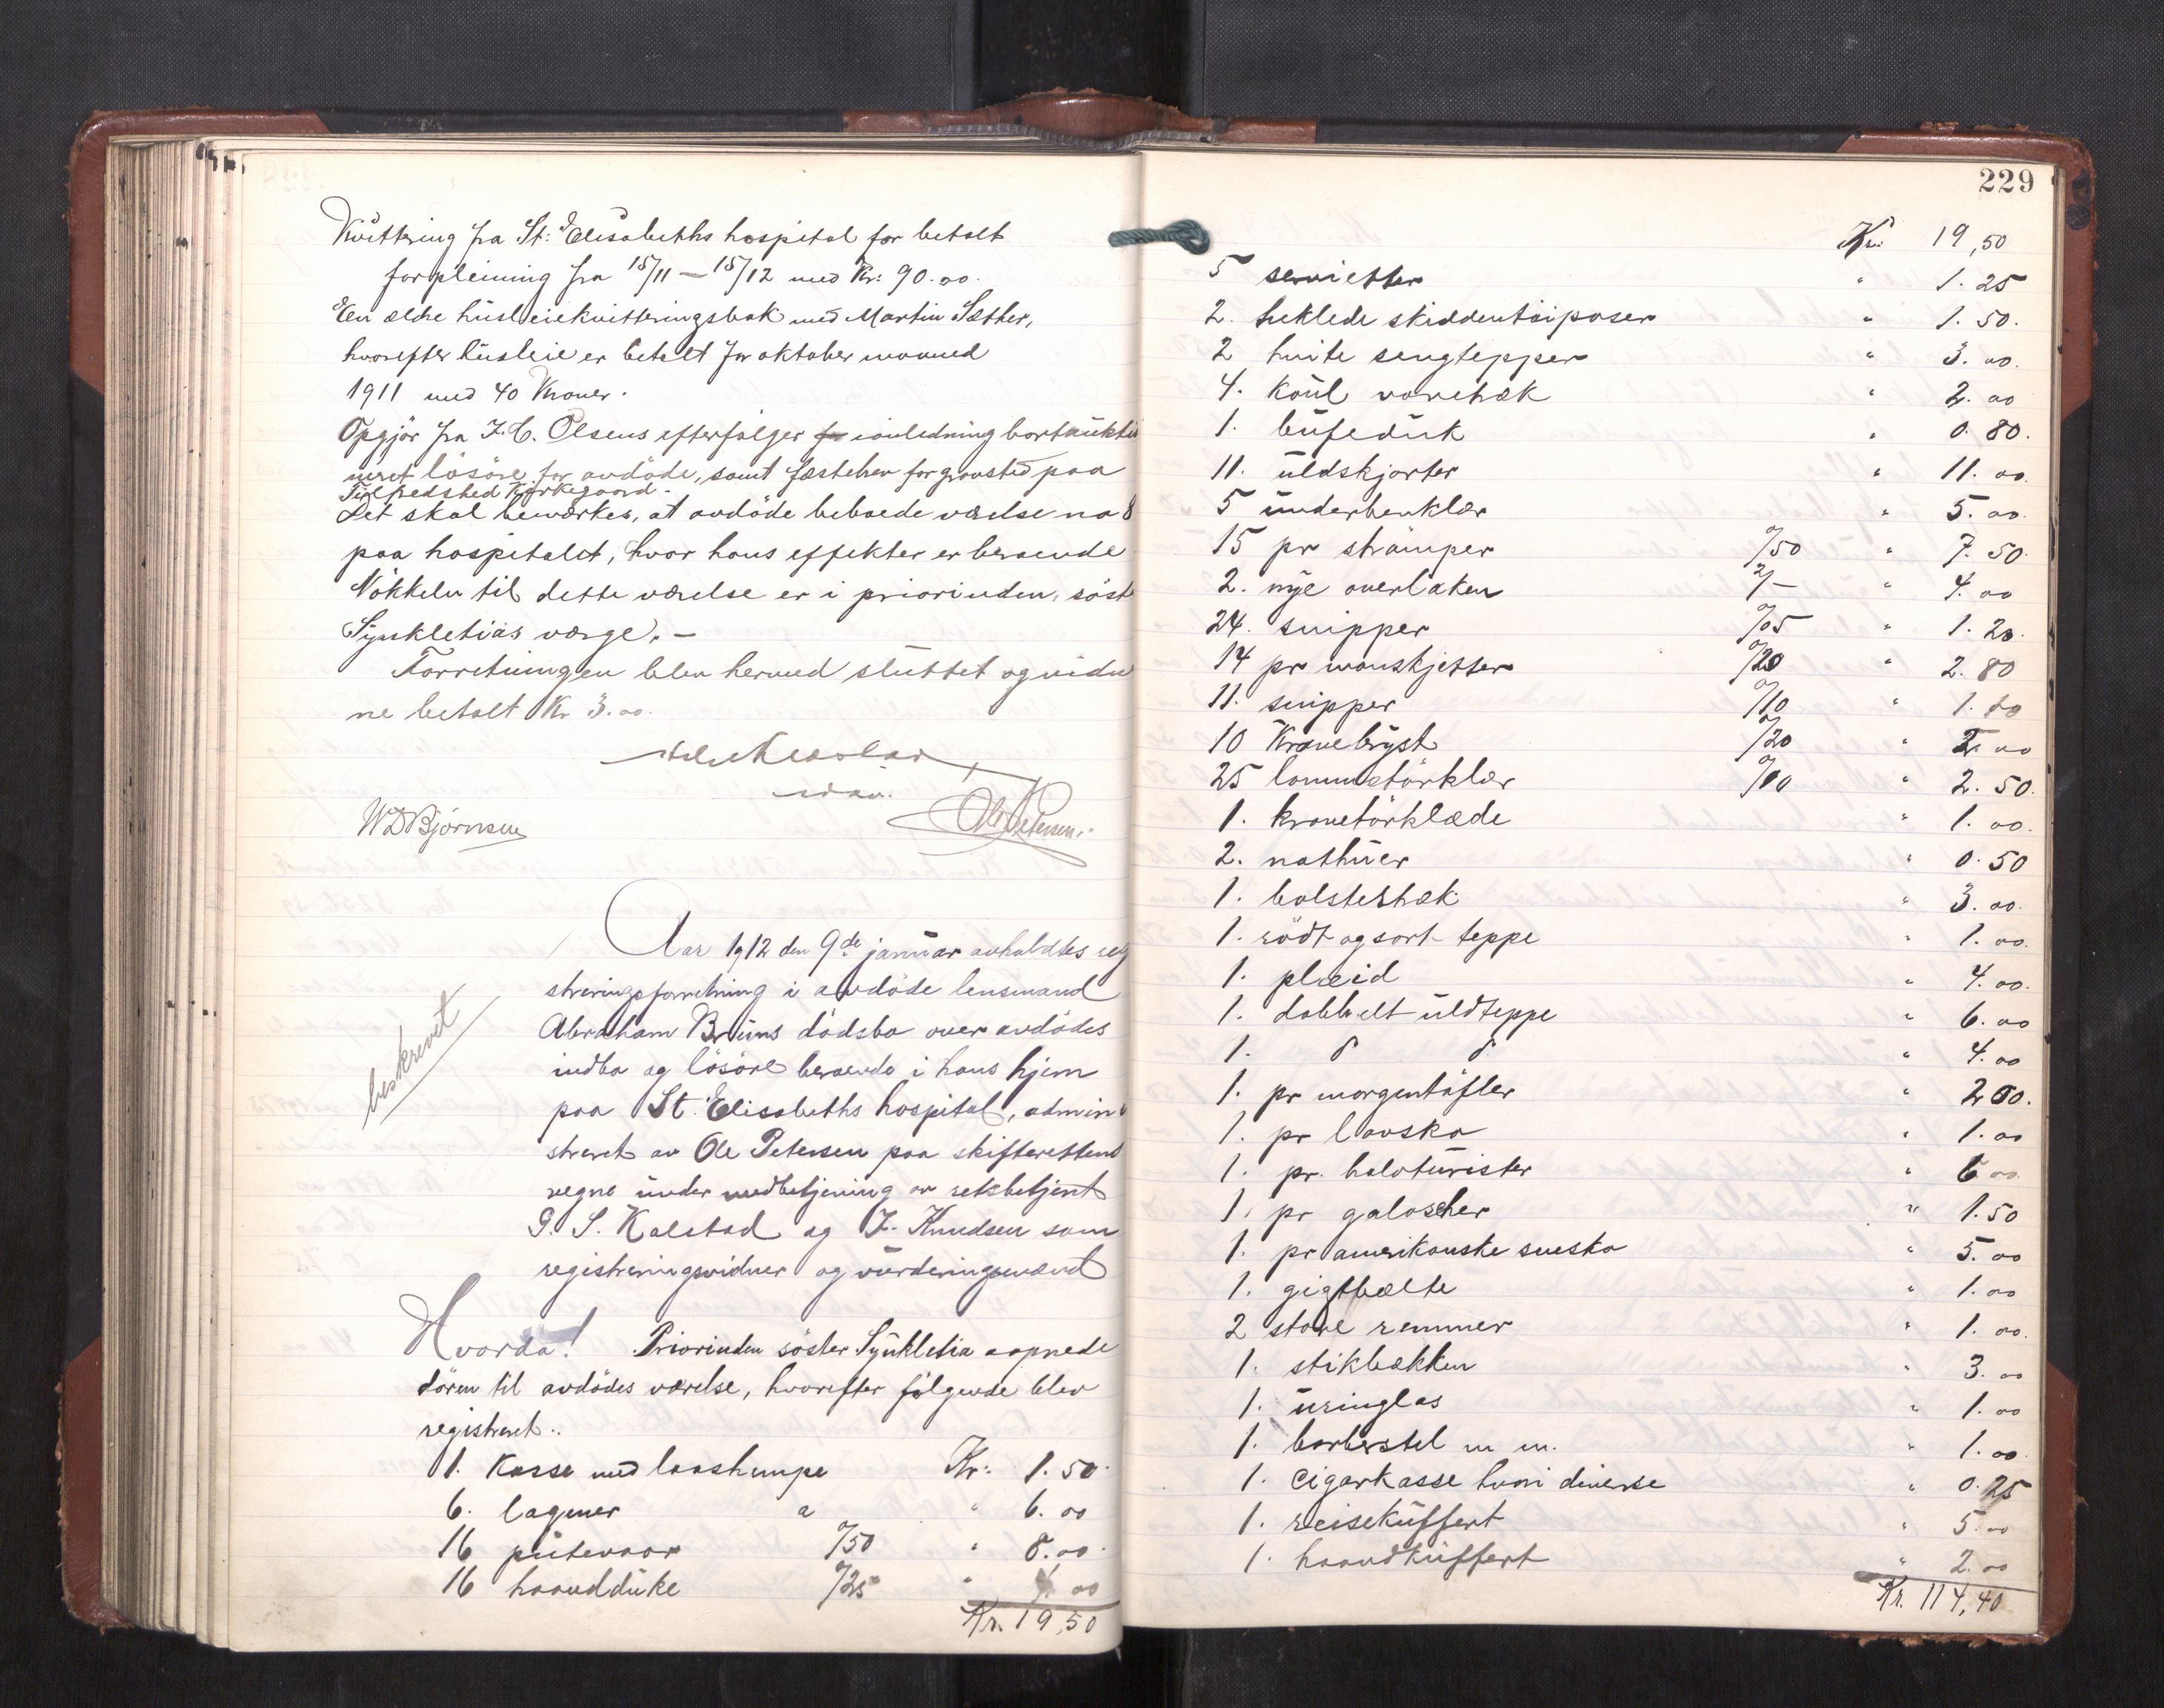 Kvittering fra St: Elisabeths hospital for betalt
forpleining fra 15/11 – 15/12 med Kr: 90.00.
En ældre husleiekvitteringsbok med Martin Sæther,
hvorefter husleie er betalt for oktober maaned
1911 med 40 Kroner.
Opgjör fra J. C. Olsens efterfølger i anledning bortauktio
neret lösöre for avdöde, samt fæstebrev for gravsted paa
Fredsted Kirkegaard.
Det skal bemærkes, at avdöde beboede værelse no 8
paa hospitalet, hvor hans effekter er beroende
Nökkelen til dette værelse er i priorinden, söst
Synkletias værge. –
Forretningen blev hermed sluttet og vidne
ne betalt Kr 3.00.
W D Bjørnsen
Ole Petersen.
Aar 1912 den 9de januar avholdtes reg
streringsforretning i avdöde lensmand
Abraham Bruns dödsbo over avdödes
indbo og lösöre beroende i hans hjem
paa St. Elisabeths hospital, admini
streret av Ole Petersen paa skifterettens
vegne under medbetjening av retsbetjent
S. Kalstad og J. Knudsen som
registreringsvidner og vurderingsmænd
beskrevet
Hvorda! Priorinden söster Synkletia aapnede
dören til avdödes værelse, hvorefter fölgende blev
registreret..
1. Kasse med laashempe Kr: 1.50.
6. lagner a " 6.00
16 putevaar 0/50 " 8.00.
16 haandduke 0/25 " 4.00
Kr. 19,50
229
Kr: 19,50
5 servietter " 1.25
2. heklede skiddentöiposer " 1.50.
2 hvite sengtepper " 3.00.
4. koul varetræk " 2.00
1. bufeduk " 0.80.
11. uldskjorter " 11.00
5 underbenklær " 5.00
15 pr strömper 0/50 " 7.50.
2. nye overlaken 2/– " 4.00
24. snipper 0/05 " 1.20.
14 pr manskjetter 0/20 " 2.80
11. snipper 0/10 " 1.10
10 Kravebryst 0/20 " 2.00
25 lommetörklær 0/10 " 2.50.
1. kravetörklæde " 1.00.
2. nathuer " 0.50
1. bolstertræk " 3.00.
1. rödt og sort teppe " 1.00.
1. pleid " 4.00.
1. dobbelt uldteppe " 6.00
1. d d " 4.00
1. pr morgentöfler " 2.00.
1. pr lavsko " 1.00
1. pr. halvturister " 6.00
1. pr galoscher " 1.50
1. pr amerikanske snesko " 5.00
1. gigtbælte " 1.00
2 store remmer " 1.00.
1. stikbækken " 3.00
1. uringlas " 1.00
1. barberstel m m. " 1.00.
1. cigarkasse hvori diverse " 0.25
1. reisekuffert " 5.00
1. haandkuffert " 2.00
Kr. 114,40